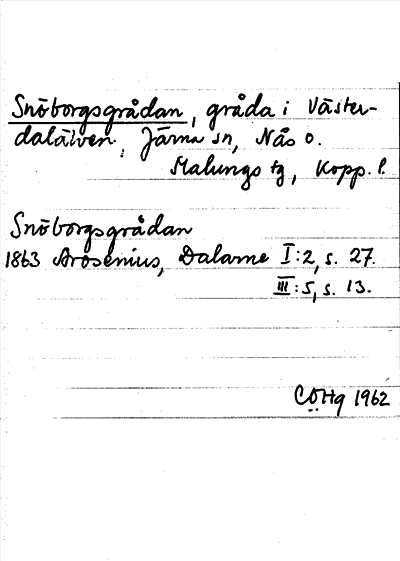 Snöborgsgrådan, gråda i Väster-
dalälven, Järna sn, Nås o.
Malungs tg, Kopp. l.
Snöborgsgrådan
1863 Arosenius, Dalarne I:2, s. 27.
III:5, s. 13.
CÖHg 1962